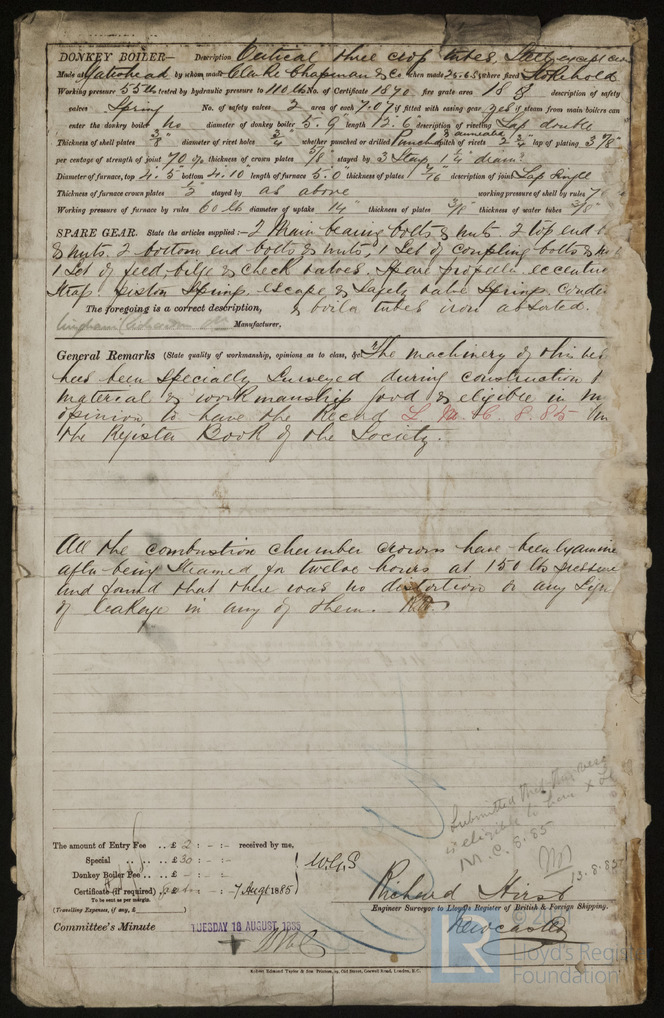 DONKEY BOILER— Description Vertical three cross tubes Steel except
Made at Gateshead by whom made Clarke Chapman & Co when made 25.6.85 where fixed Stokehold
Working pressure 55 lb tested by hydraulic pressure to 110 lb No. of Certificate 1890 fire grate area 18 description of safety
valves Spring No. of safety valves 2 area of each 7.07 if fitted with easing gear yes if steam from main boilers can
enter the donkey boiler no diameter of donkey boiler 5.9" length 12.6 description of riveting Lap double
Thickness of shell plates 3/8 diameter of rivet holes 3/4 whether punched or drilled Punched & annealed pitch of rivets 2 3/4 lap of plating 3 7/8"
per centage of strength of joint 70 % thickness of crown plates 5/8 stayed by 3 Stays 1 1/4 diam
Diameter of furnace, top 4.5 bottom 4.10 length of furnace 5.0 thickness of plates 7/16 description of joint Lap Single
Thickness of furnace crown plates 1/2 stayed by as above working pressure of shell by rules
Working pressure of furnace by rules 60 lb diameter of uptake 14" thickness of plates 3/8 thickness of water tubes 3/8
SPARE GEAR. State the articles supplied:— 2 Main bearing bolts & nuts 2 top end
& nuts. 2 bottom end bolts & nuts, 1 Set of coupling bolts &
1 Set of feed, bilge & check valves. Spare propeller eccentric
strap. piston Springs, escape & safety valve Springs.
The foregoing is a correct description, & boiler tubes iron assorted.
Manufacturer.
General Remarks (State quality of workmanship, opinions as to class, &c. The machinery of this
has been Specially Surveyed during construction
material & workmanship good & eligible in my
opinion to have the Record L. M. C. 8.85 in
the Register Book of the Society.
All the combustion chamber crowns have been examined
after being steamed for twelve hours at 150 lbs pressure
and found that there was no distortion or any sign
of leakage in any of them. R.H.
Submitted that this vessel
is eligible to have
M.C. 8.85
13.8.85
The amount of Entry Fee .. £ 2 : - : - received by me,
Special .. .. £ 30 : - : -
Donkey Boiler Fee .. £ - : - : -
Certificate (if required) .. 7 Augt 1885
To be sent as per margin.
(Travelling Expenses, if any, £ )
Richard Hirst
Engineer Surveyor to Lloyd's Register of British & Foreign Shipping.
Newcastle
Committee's Minute TUESDAY 18 AUGUST, 1885
+ LMC
LR
© 2021
Lloyd's Register
Foundation